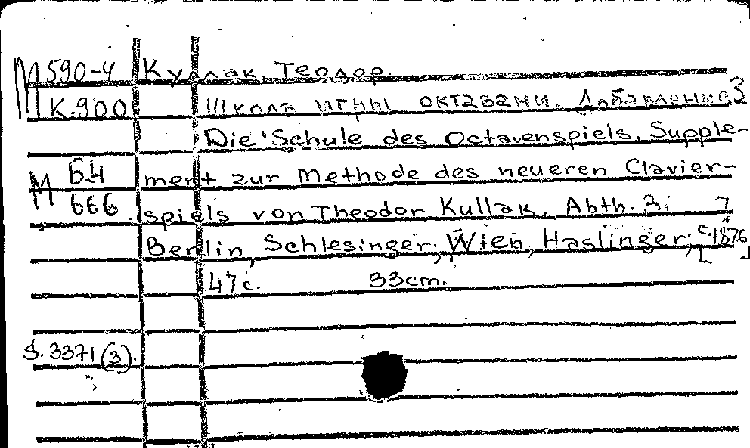 М 590-4 Куллак, Теодор.
К.900 Школа игры октавами. Добавление 3
Die Schule des Octavenspiels, Supple-
М 64 ment zur Methode des neueren Clavier-
666 spiels von Theodor Kullak, Abth. 3:
Berlin, Schlesinger; Wien, Haslinger, 1876
47 с. 33 cm.
S. 3371 (3).